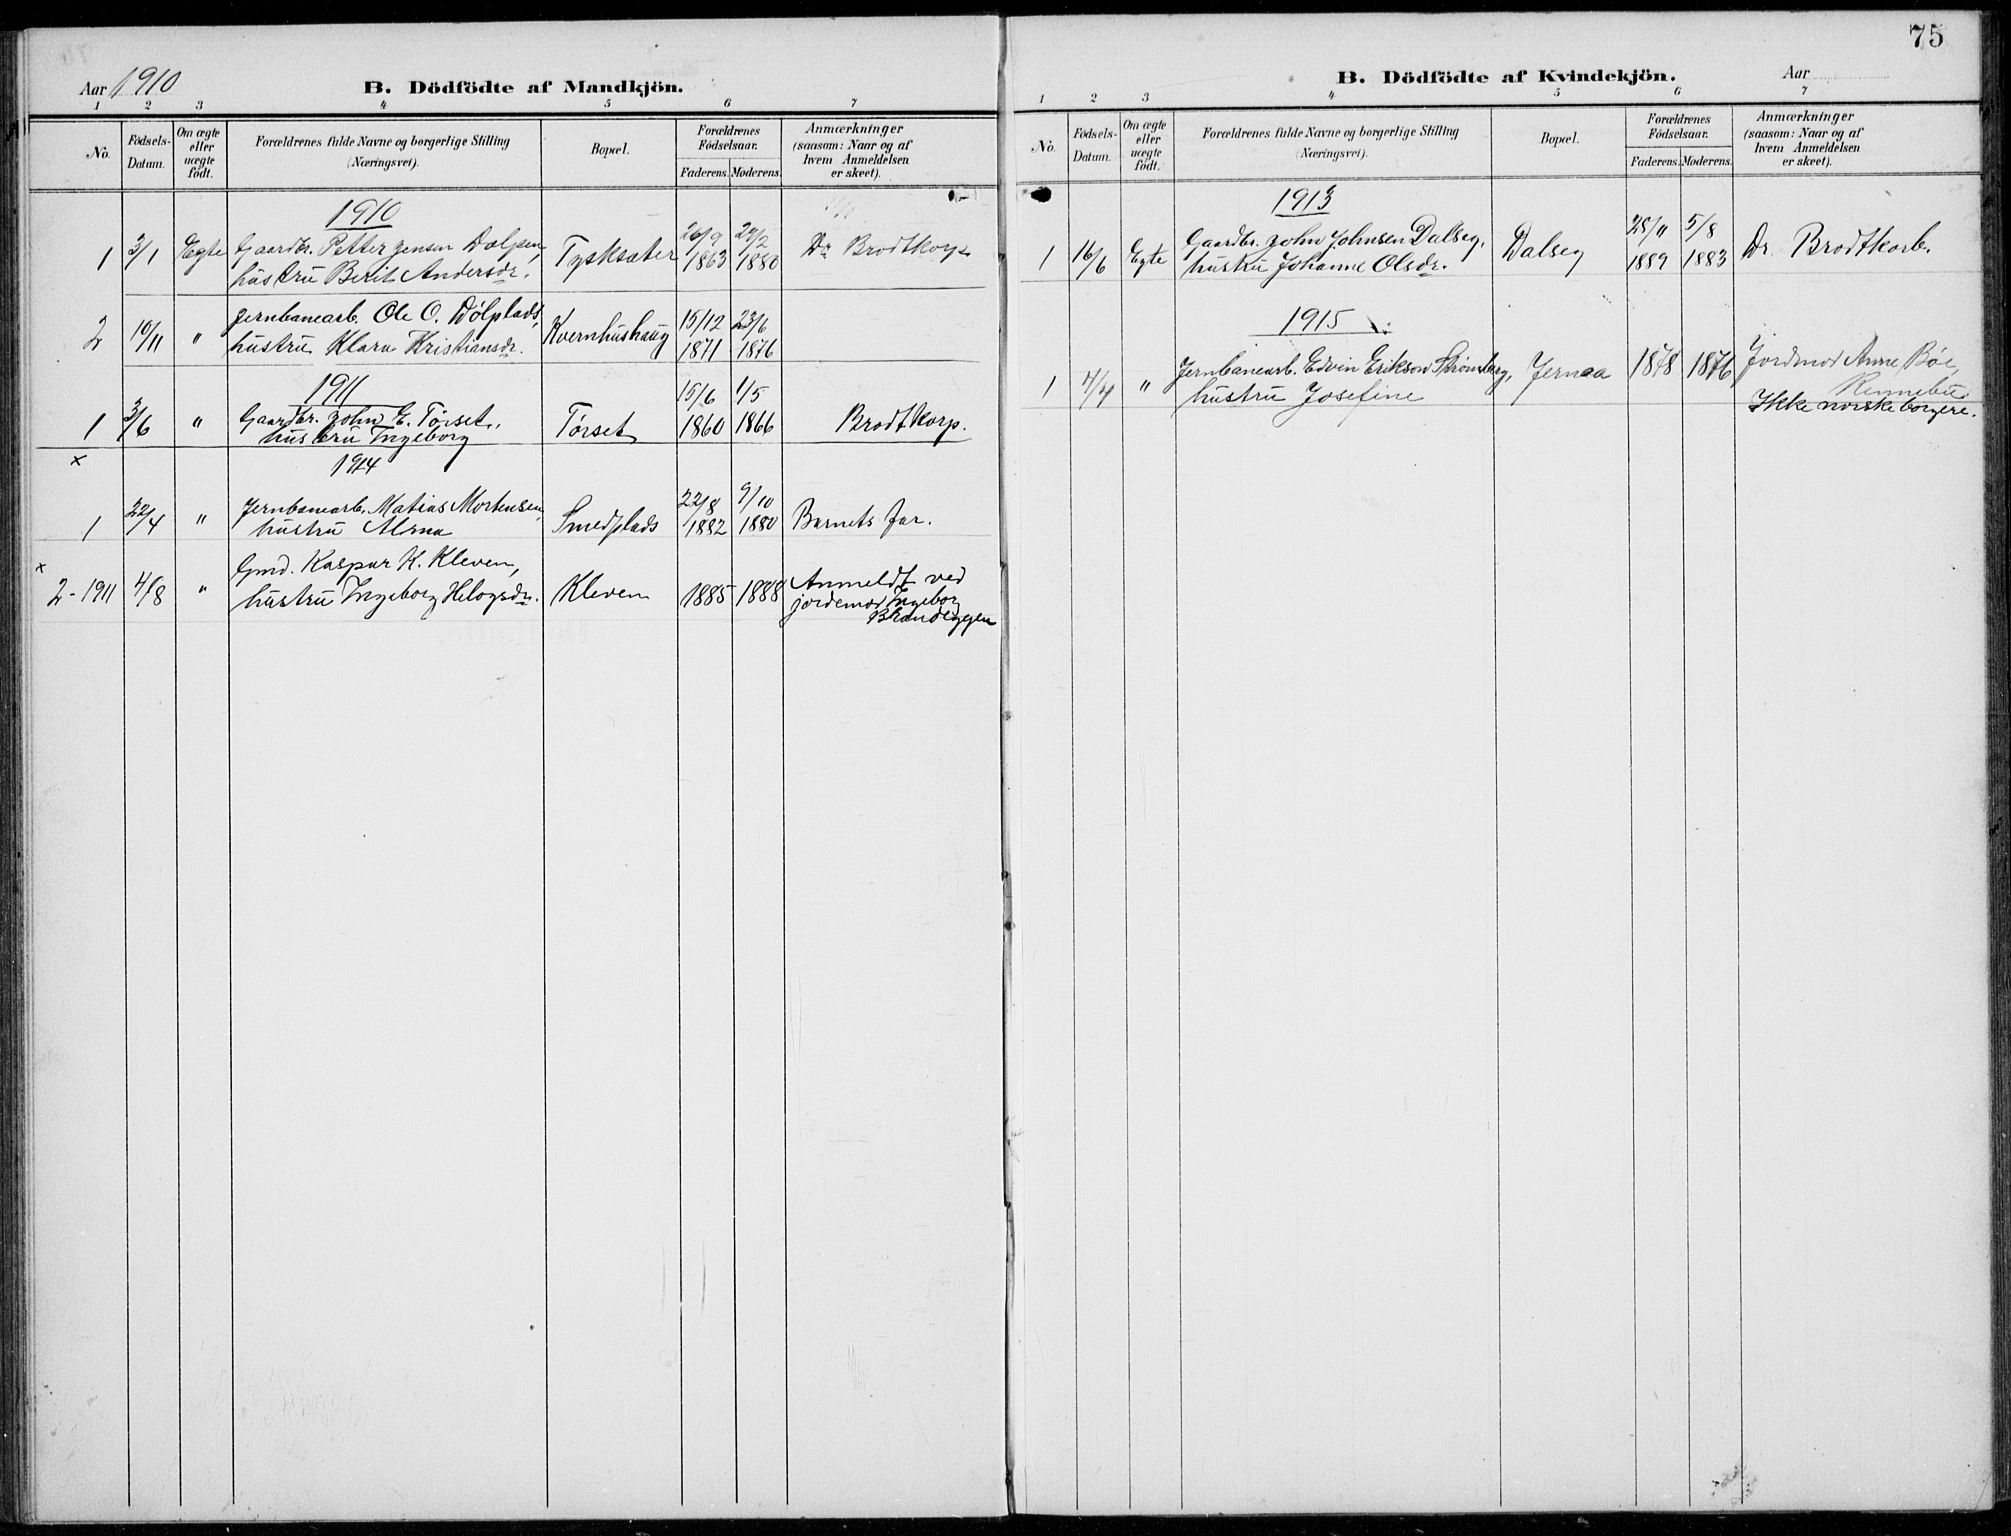 75
Aar 1910
B. Dödfödte af Mandkjön.
1 2 3 4 5 6 7
No. Födsels-Datum. Om ægte eller uægte födt. Forældrenes fulde Navne og borgerlige Stilling (Næringsvei). Bopæl. Forældrenes Födselsaar. Faderens. Moderens. Anmærkninger (saasom: Naar og af hvem Anmeldelsen er skeet).
1910
1 3/1 Egte Gaardbr. Petter Jensen Dølpen, Tysksæter 26/9 1863 29/2 1880 Dr. Brodtkorp
hustru Berit Andersdr.
2 10/11 " Jernbanearb. Ole O. Dølplads, Kvernhushaug 15/12 1871 23/6 1876
hustru Klara Kristiansdr.
1911
1 3/6 " Gaardbr. John E. Tørset, Tørset 15/6 1860 1/5 1866 Brodtkorp.
hustru Ingeborg
x 1914
1 22/4 " Jernbanearb. Matias Mortensen, Smedplads 22/8 1882 9/10 1880 Barnets far.
hustru Alma
x Gmd. Kaspar K. Kleven,
2-1911 4/8 " hustru Ingeborg Helogsdr. Kleven 1885 1888 Anmeldt ved
jordemor Ingeborg
Brandeggen
B. Dödfödte af Kvindekjön.
Aar
1 2 3 4 5 6 7
No. Födsels-Datum. Om ægte eller uægte födt. Forældrenes fulde Navne og borgerlige Stilling (Næringsvei). Bopæl. Forældrenes Födselsaar. Faderens. Moderens. Anmærkninger (saasom: Naar og af hvem Anmeldelsen er skeet).
1913
1 16/6 Egte Gaardbr. John Johnsen Dalseg, Dalseg 25/11 1889 5/8 1883 Dr. Brodtkorb.
hustru Johanne Olsdr.
1915
1 4/4 " Jernbanearb. Edvin Erikson Strømberg, Jernaa 1878 1876 Jordmor Anne Bøe,
hustru Josefine Rennebu
Ikke norske borgere.